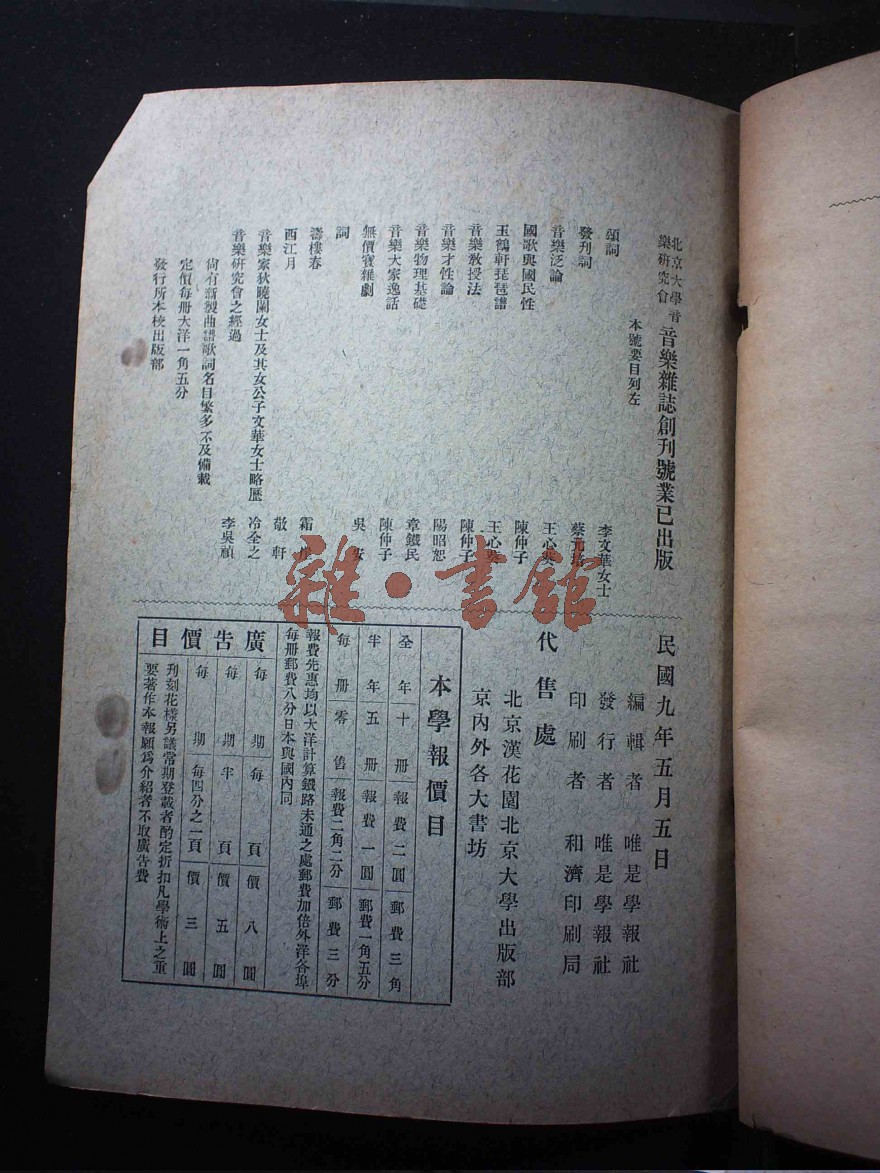 北京大學音樂研究會 音樂雜誌創刊號業已出版
本號要目列左
頌詞 李文華女士
發刊詞 蔡元培
音樂泛論 王心葵
國歌與國民性 陳仲子
玉鶴軒琵琶譜 王心葵
音樂教授法 陳仲子
音樂才性論 陽昭恕
音樂物理基礎 章鐵民
音樂大家逸話 陳仲子
無價寶雜劇 吳
詞
濤樓春 霜
西江月 敬軒
音樂家狄曉蘭女士及其女公子文華女士略歷 冷全之
音樂研究會之經過 李吳禎
尙有新製曲譜歌詞名目繁多不及備載
定價每册大洋一角五分
發行所本校出版部
民國九年五月五日
編輯者 唯是學報社
發行者 唯是學報社
印刷者 和濟印刷局
代售處
北京漢花園北京大學出版部
京內外各大書坊
本學報價目
全年十册 報費二圓 郵費三角
半年五册 報費一圓 郵費一角五分
每册零售 報費二角二分 郵費三分
報費先惠均以大洋計算鐵路未通之處郵費加倍外洋各埠
每册郵費八分日本與國內同
廣告價目
每期每頁價八圓
每期半頁價五圓
每期每四分之一頁價三圓
刊刻花樣另議常期登載者酌定折扣凡學術上之重
要著作本報願爲介紹者不取廣告費
雜·書館